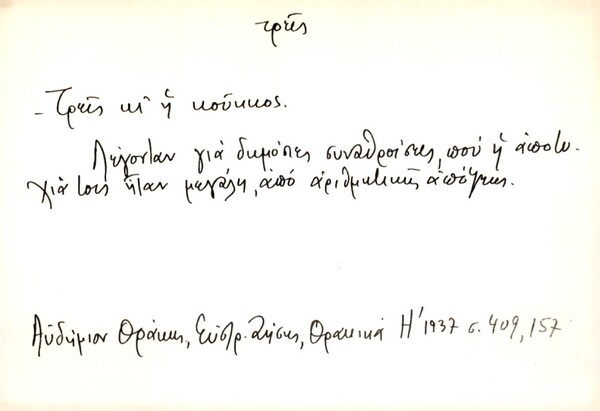 τρεῖς
- Τρεῖς κι' ἡ κοῦκκος.
Λέγονταν γιά δημόσιες συναθροίσεις, πού ἡ ἀποτυ-
χιά τους ἦταν μεγάλη, ἀπό ἀριθμητικῆς ἀπόψεως.
Αὐδήμιον Θράκης, Εὐστρ. Ζήσης, Θρακικά Η' 1937 σ. 409, 157